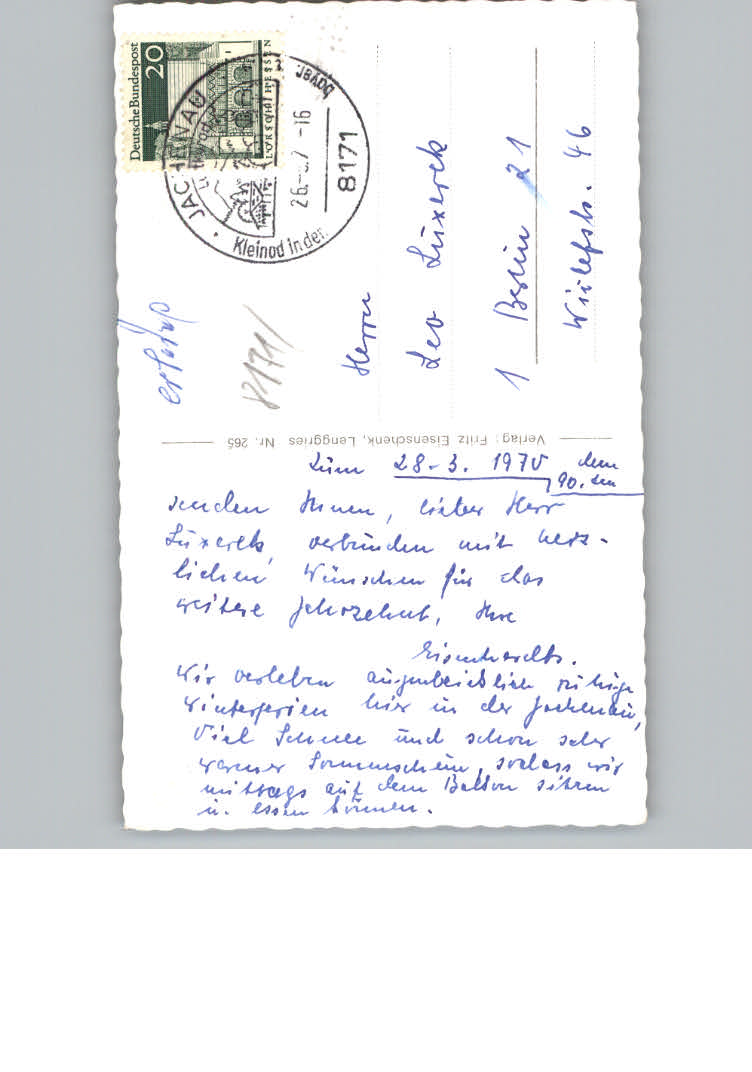 Deutsche Bundespost
20
LORSCH/HESSEN
JACHENAU
Kleinod in den
bayer.
26.-3.7 -16
8171
8171/
Herrn
Leo Luxereck
1 Berlin 21
46
Verlag: Fritz Eisenschenk, Lenggries Nr. 265
Zum 28-3. 1970 dem
90. ten
senden Ihnen, lieber Herr
verbunden mit herz-
lichen Wünschen für das
weitere Jahrzehnt, Ihre
Wir verleben augenblicklich ruhige
Winterferien hier in der Jachenau,
Viel Schnee und schon sehr
warmer Sonnenschein, sodass wir
mittags auf dem Balkon sitzen
u. essen können.